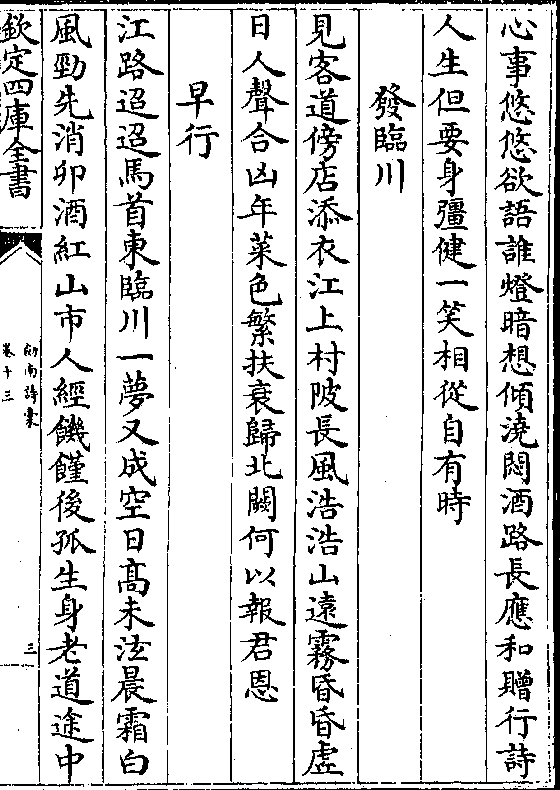 心事悠悠欲語誰燈暗想傾澆悶酒路長應和贈行詩
人生但要身彊健一笑相從自有時
發臨川
見客道傍店添衣江上村陂長風浩浩山遠霧昏昏虚
日人聲合凶年菜色繁扶衰歸北闕何以報君恩
早行
江路迢迢馬首東臨川一夢又成空日髙未泫晨霜白
風勁先消卯酒紅山市人經饑饉後孤生身老道途中
欽定四庫全書
劍南詩稾
卷十三
三